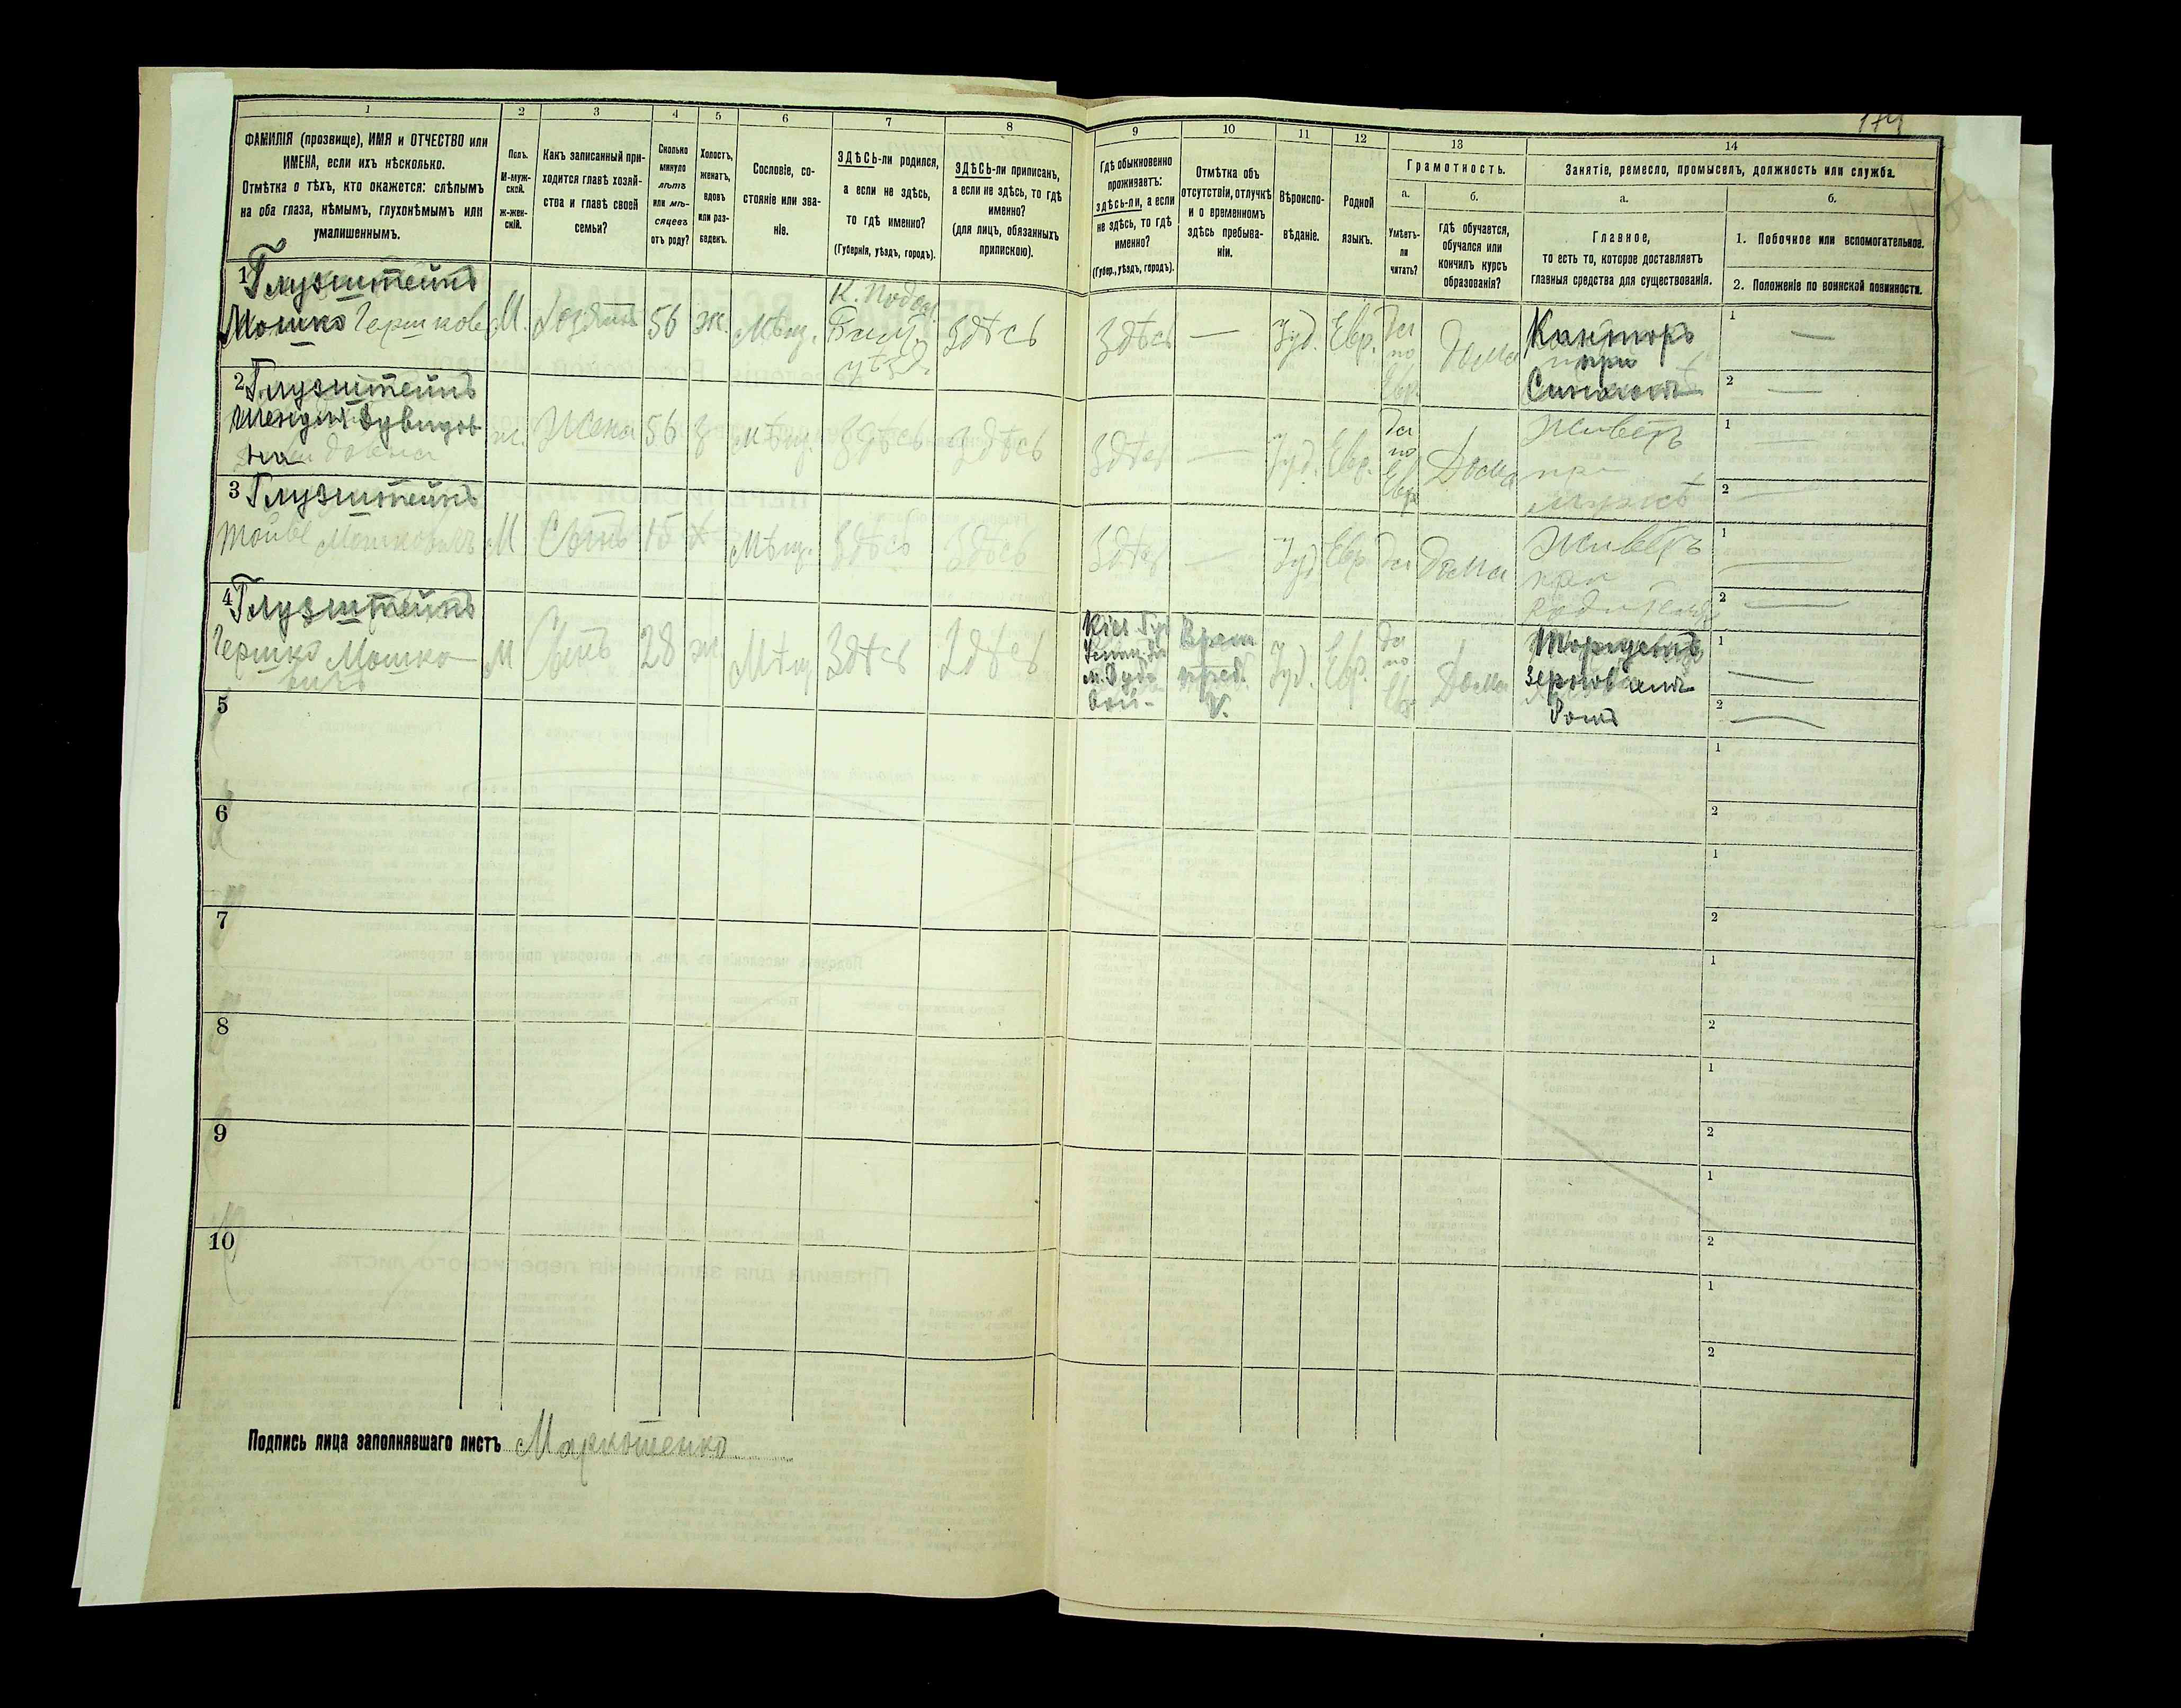 1
2
3
4
5
6
7
8
ФАМИЛІЯ (прозвище), ИМЯ и ОТЧЕСТВО или
ИМЕНА, если ихъ нѣсколько.
Отмѣтка о тѣхъ, кто окажется: слѣпымъ
на оба глаза, нѣмымъ, глухонѣмымъ или
умалишеннымъ.
Полъ.
М-муж-
ской.
ж-жен-
скій.
Какъ записанный при-
ходится главѣ хозяй-
ства и главѣ своей
семьи?
Сколько
минуло
лѣтъ
или мѣ-
сяцевъ
отъ роду?
Холостъ,
женатъ,
вдовъ
или раз-
веденъ.
Сословіе, со-
стояніе или зва-
ніе.
ЗДѢСЬ-ли родился,
а если не здѣсь,
то гдѣ именно?
(Губернія, уѣздъ, городъ).
ЗДѢСЬ-ли приписанъ,
а если не здѣсь, то гдѣ
именно?
(для лицъ, обязанныхъ
припискою).
9
10
11
12
13
14
Гдѣ обыкновенно
проживаетъ:
здѣсь-ли, а если
не здѣсь, то гдѣ
именно?
(Губер., уѣздъ, городъ).
Отмѣтка объ
отсутствіи, отлучкѣ
и о временномъ
здѣсь пребыва-
ніи.
Вѣроиспо-
вѣданіе.
Родной
языкъ.
Грамотность.
а.
Умѣетъ-
ли
читать?
б.
гдѣ обучается,
обучался или
кончилъ курсъ
образованія?
Занятіе, ремесло, промыселъ, должность или служба.
а.
Главное,
то есть то, которое доставляетъ
главныя средства для существованія.
б.
1. Побочное или вспомогательное.
2. Положеніе по воинской повинности.
1 Глузштейнъ
Мошко Гершков
М.
Хозяинъ
56
ж.
Мѣщ.
К. Подол.
уѣзд.
Здѣсь
Здѣсь
—
Іуд.
Евр.
Да
по
Евр.
Дома
Канторъ
при
1 —
2 —
2 Глузштейнъ
ж.
Жена
56
З
Мѣщ.
Здѣсь
Здѣсь
Здѣсь
—
Іуд.
Евр.
Да
по
Евр
Дома
Живетъ
при
мужѣ
1 —
2 —
3 Глузштейнъ
Мошковичъ
М
Сынъ
15
Х
Мѣщ.
Здѣсь
Здѣсь
Здѣсь
—
Іуд
Евр
Да
Дома
Живетъ
при
1 —
2 —
4 Глузштейнъ
Гершко Мошко
вичъ
М
Сынъ
28
ж
Мѣщ
Здѣсь
Здѣсь
Кіев. Губ
Врем
преб.
Іуд.
Евр.
Да
по
Евр
Дома
Торговецъ
1 —
2 —
5
1
2
6
1
2
7
1
2
8
1
2
9
1
2
10
1
2
Подпись лица заполнявшаго листъ